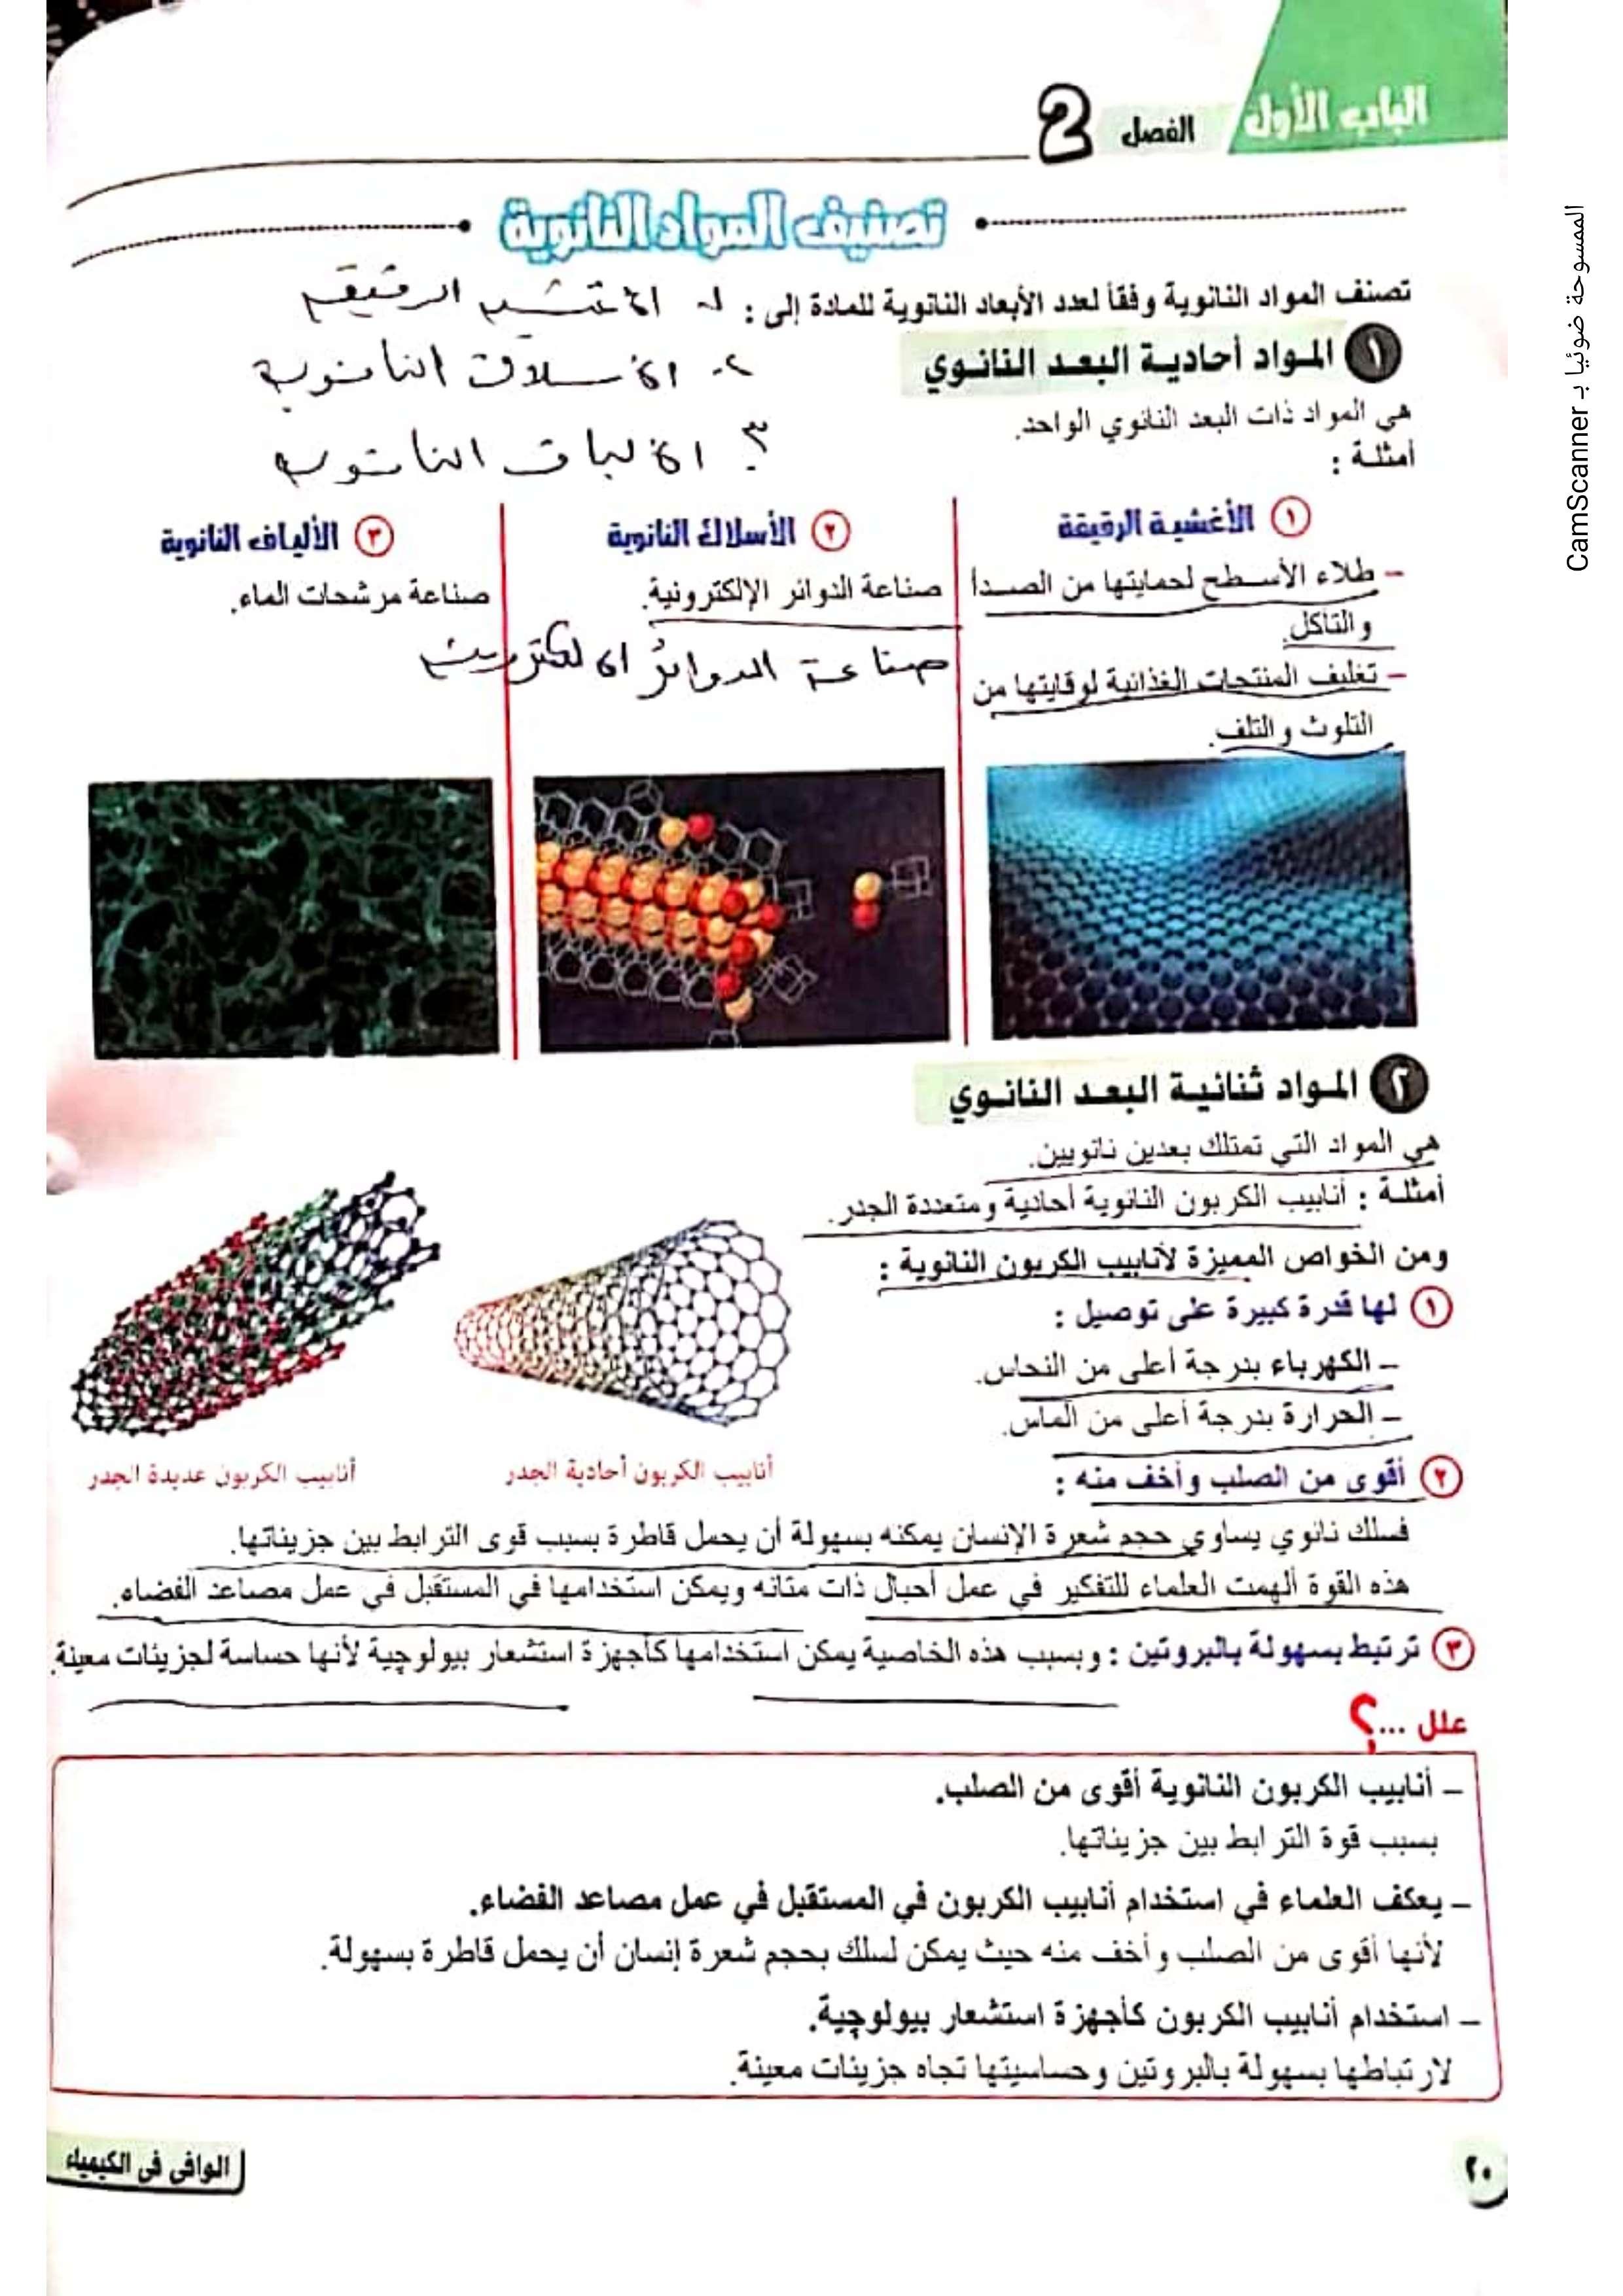 الباب الأول
الفصل 2
تصنيف المواد النانوية
تصنف المواد النانوية وفقاً لعدد الأبعاد النانوية للمادة إلى :
١- الاغشيه الرقيقه
١ المواد أحادية البعد النانوي
٢- الاسلاك النانويه
هي المواد ذات البعد النانوي الواحد.
٣- الالياف النانويه
أمثلة :
١ الأغشية الرقيقة
– طلاء الأسطح لحمايتها من الصدأ
والتآكل.
– تغليف المنتجات الغذائية لوقايتها من
التلوث والتلف.
٢ الأسلاك النانوية
صناعة الدوائر الإلكترونية.
صناعة الدوائر الالكترونيه
٣ الألياف النانوية
صناعة مرشحات الماء.
٢ المواد ثنائية البعد النانوي
هي المواد التي تمتلك بعدين نانويين.
أمثلة : أنابيب الكربون النانوية أحادية ومتعددة الجدر.
ومن الخواص المميزة لأنابيب الكربون النانوية :
١ لها قدرة كبيرة على توصيل :
– الكهرباء بدرجة أعلى من النحاس.
– الحرارة بدرجة أعلى من الماس.
أنابيب الكربون أحادية الجدر
أنابيب الكربون عديدة الجدر
٢ أقوى من الصلب وأخف منه :
فسلك نانوي يساوي حجم شعرة الإنسان يمكنه بسهولة أن يحمل قاطرة بسبب قوى الترابط بين جزيئاتها.
هذه القوة ألهمت العلماء للتفكير في عمل أحبال ذات متانه ويمكن استخدامها في المستقبل في عمل مصاعد الفضاء.
٣ ترتبط بسهولة بالبروتين : وبسبب هذه الخاصية يمكن استخدامها كأجهزة استشعار بيولوجية لأنها حساسة لجزيئات معينة.
علل ...؟
– أنابيب الكربون النانوية أقوى من الصلب.
بسبب قوة الترابط بين جزيئاتها.
– يعكف العلماء في استخدام أنابيب الكربون في المستقبل في عمل مصاعد الفضاء.
لأنها أقوى من الصلب وأخف منه حيث يمكن لسلك بحجم شعرة إنسان أن يحمل قاطرة بسهولة.
– استخدام أنابيب الكربون كأجهزة استشعار بيولوجية.
لارتباطها بسهولة بالبروتين وحساسيتها تجاه جزيئات معينة.
٢٠
الوافي في الكيمياء
الممسوحة ضوئيا بـ CamScanner